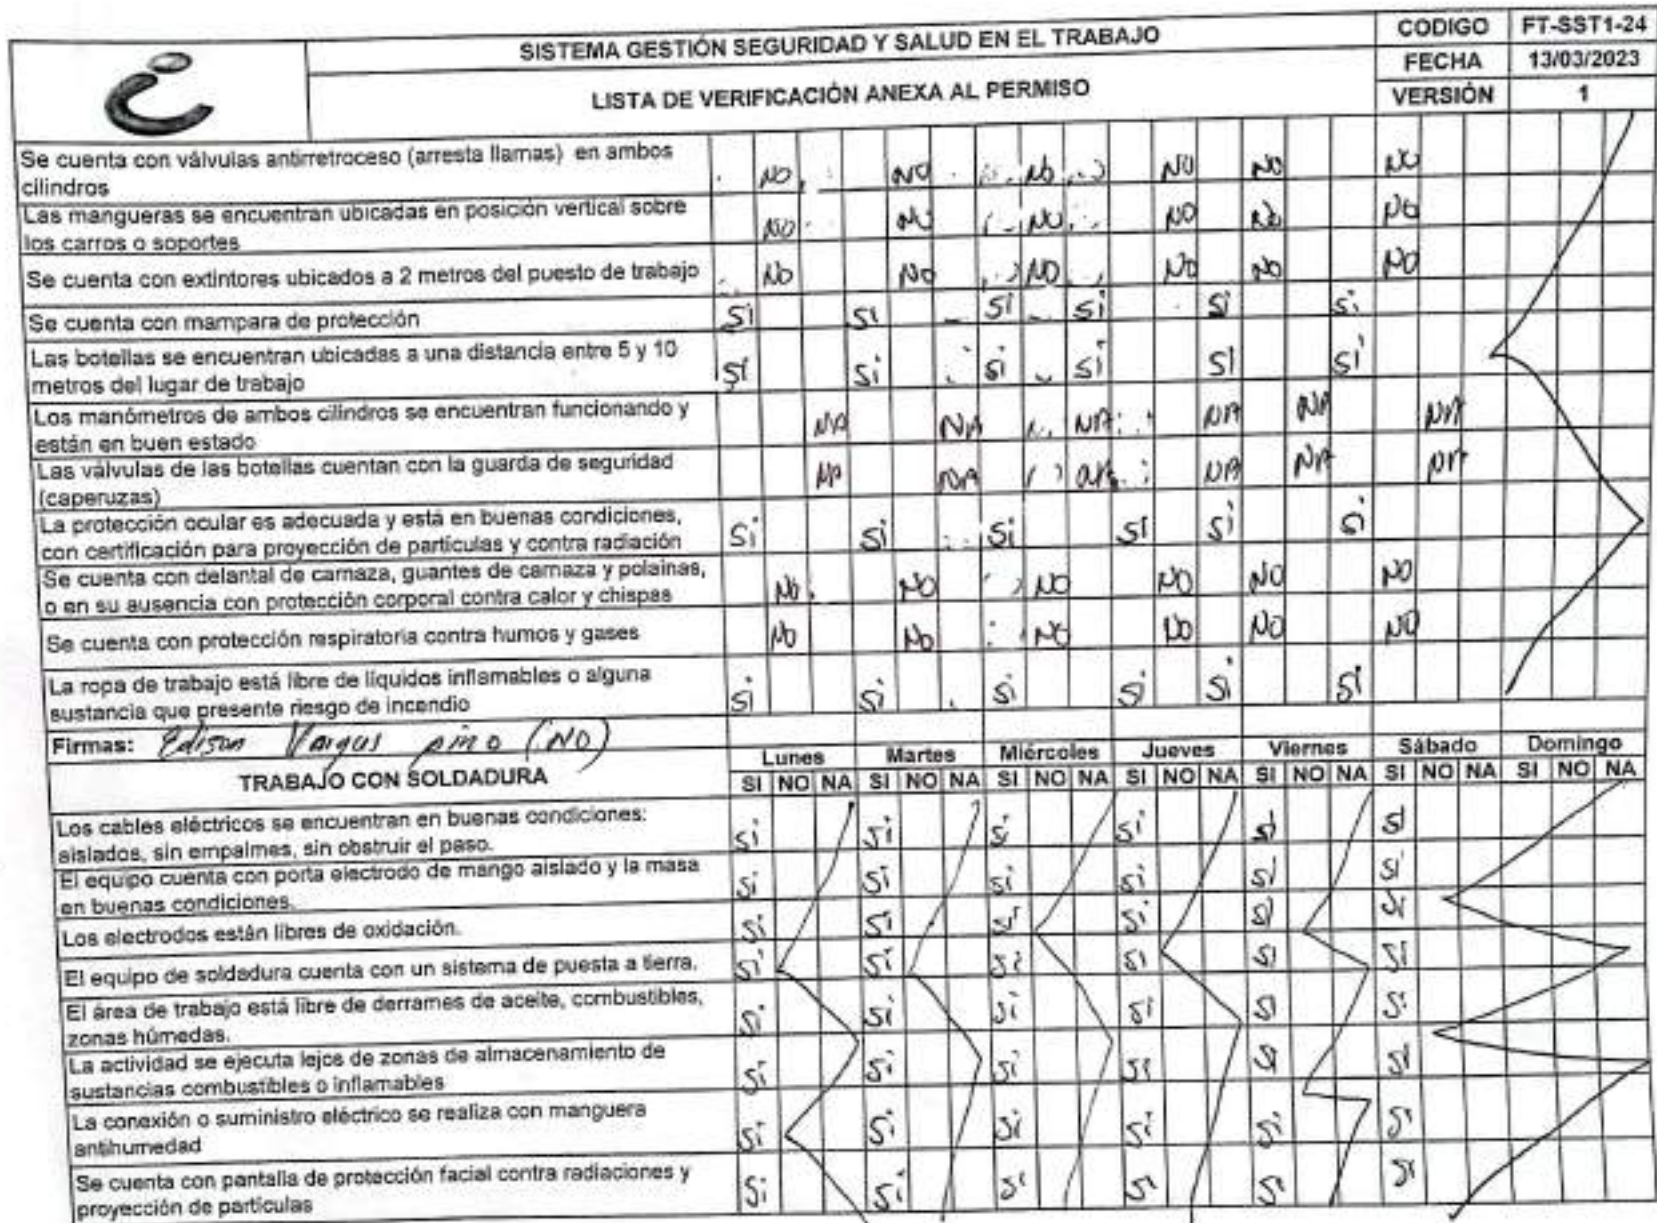 SISTEMA GESTIÓN SEGURIDAD Y SALUD EN EL TRABAJO
CODIGO FT-SST1-24
FECHA 13/03/2023
LISTA DE VERIFICACIÓN ANEXA AL PERMISO
VERSIÓN 1
Se cuenta con válvulas antirretroceso (arresta llamas) en ambos
cilindros NO NO NO NO NO NO
Las mangueras se encuentran ubicadas en posición vertical sobre
los carros o soportes NO NO NO NO NO NO
Se cuenta con extintores ubicados a 2 metros del puesto de trabajo NO NO NO NO NO NO
Se cuenta con mampara de protección Si Si Si Si Si Si
Las botellas se encuentran ubicadas a una distancia entre 5 y 10
metros del lugar de trabajo Si Si Si Si Si Si
Los manómetros de ambos cilindros se encuentran funcionando y
están en buen estado NA NA NA NA NA NA
Las válvulas de las botellas cuentan con la guarda de seguridad
(caperuzas) NA NA NA NA NA NA
La protección ocular es adecuada y está en buenas condiciones,
con certificación para proyección de partículas y contra radiación Si Si Si Si Si Si
Se cuenta con delantal de carnaza, guantes de carnaza y polainas,
o en su ausencia con protección corporal contra calor y chispas NO NO NO NO NO NO
Se cuenta con protección respiratoria contra humos y gases NO NO NO NO NO NO
La ropa de trabajo está libre de líquidos inflamables o alguna
sustancia que presente riesgo de incendio Si Si Si Si Si Si
Firmas: Edison Vargas pino (NO)
Lunes Martes Miércoles Jueves Viernes Sábado Domingo
TRABAJO CON SOLDADURA SI NO NA SI NO NA SI NO NA SI NO NA SI NO NA SI NO NA SI NO NA
Los cables eléctricos se encuentran en buenas condiciones:
aislados, sin empalmes, sin obstruir el paso. Si Si Si Si Si Si
El equipo cuenta con porta electrodo de mango aislado y la masa
en buenas condiciones. Si Si Si Si Si Si
Los electrodos están libres de oxidación. Si Si Si Si Si Si
El equipo de soldadura cuenta con un sistema de puesta a tierra. Si Si Si Si Si Si
El área de trabajo está libre de derrames de aceite, combustibles,
zonas húmedas. Si Si Si Si Si Si
La actividad se ejecuta lejos de zonas de almacenamiento de
sustancias combustibles o inflamables Si Si Si Si Si Si
La conexión o suministro eléctrico se realiza con manguera
antihumedad Si Si Si Si Si Si
Se cuenta con pantalla de protección facial contra radiaciones y
proyección de partículas Si Si Si Si Si Si